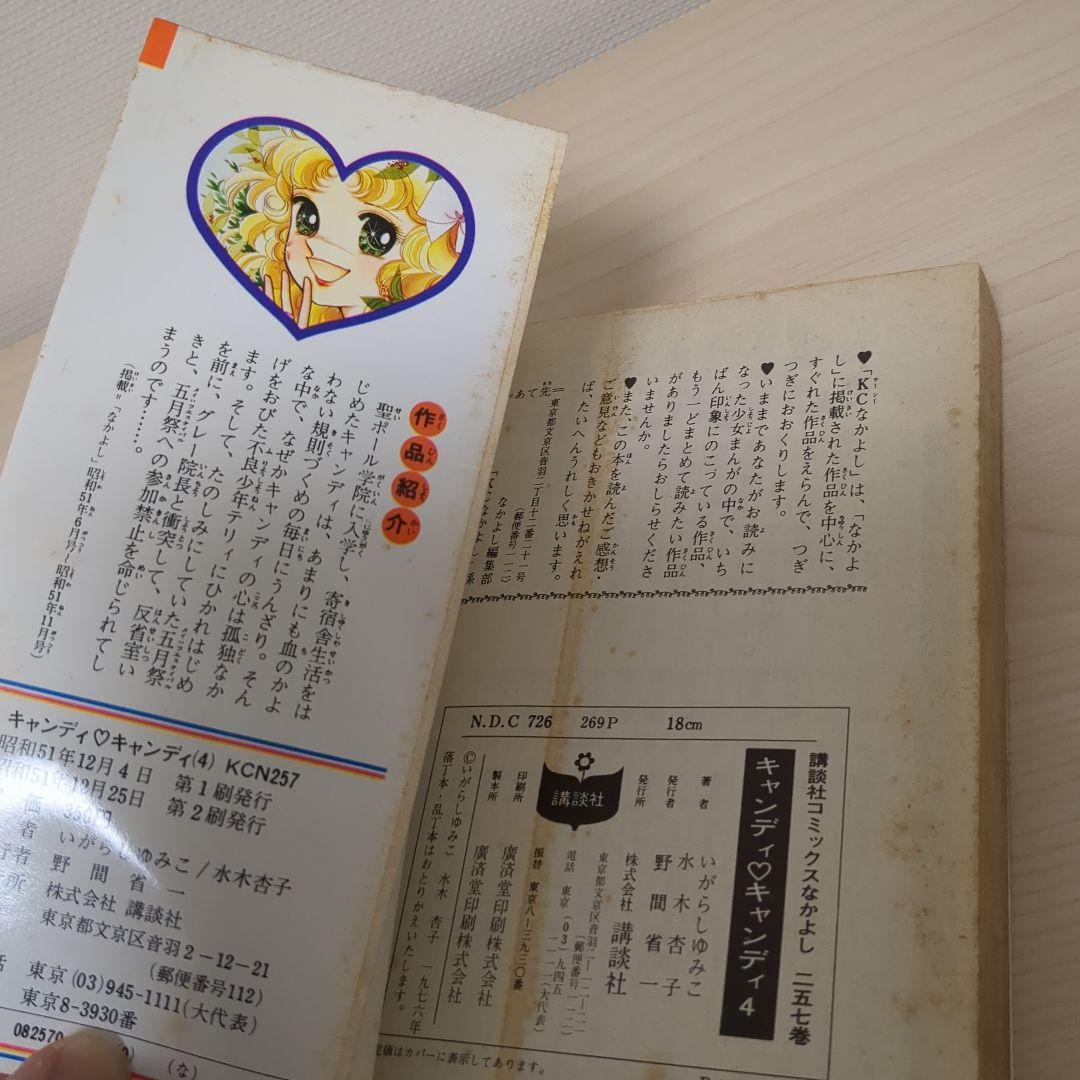 作品紹介
聖ポール学院に入学し、寄宿舎生活をは
じめたキャンディは、あまりにも血のかよ
わない規則づくめの毎日にうんざり。そん
な中で、なぜかキャンディの心は孤独なか
げをおびた不良少年テリィにひかれはじめ
ます。そして、たのしみにしていた五月祭
を前に、グレー院長と衝突して、反省室い
きと、五月祭への参加禁止を命じられてし
まうのです……。
(掲載=「なかよし」昭和51年6月号〜昭和51年11月号)
キャンディ♡キャンディ(4) KCN257
昭和51年12月4日 第1刷発行
昭和51年12月25日 第2刷発行
価 350円
者 いがらしゆみこ/水木杏子
行者 野間省一
所 株式会社 講談社
東京都文京区音羽2-12-21
(郵便番号112)
話 東京(03)945-1111(大代表)
東京8-3930番
082570
(な)
♥「KCなかよし」は、「なかよ
し」に掲載された作品を中心に、
すぐれた作品をえらんで、つぎ
つぎにおおくりします。
♥いままであなたがお読みに
なった少女まんがの中で、いち
ばん印象にのこっている作品、
もう一どまとめて読みたい作品
がありましたらおしらせくださ
いませんか。
♥また、この本を読んだご感想・
ご意見などもおきかせねがえれ
ば、たいへんうれしく思います。
あて先=東京都文京区音羽二丁目十二番二十一号
(郵便番号一一二)
なかよし編集部
N.D.C 726 269P 18cm
講談社コミックスなかよし 二五七巻
キャンディ♡キャンディ 4
著者 いがらしゆみこ
水木杏子
発行者 野間省一
発行所 株式会社 講談社
東京都文京区音羽二—一二—二一
(郵便番号一一二)
電話 東京(03)九四五
—一一一一(大代表)
振替 東京八—三九三〇番
講談社
印刷所 廣済堂印刷株式会社
製本所 廣済堂印刷株式会社
©いがらしゆみこ 水木杏子 一九七六年
落丁本・乱丁本はおとりかえいたします。
定価はカバーに表示してあります。